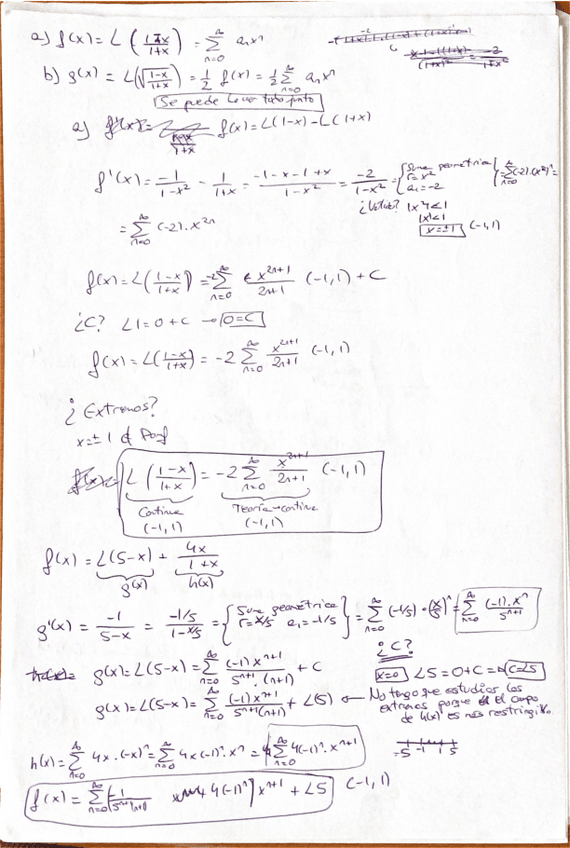 a) f(x) = L (1-x / 1+x) = ∑_{n=0}^{∞} aₙxⁿ
b) g(x) = L(√(1-x / 1+x)) = 1/2 f(x) = 1/2 ∑_{n=0}^{∞} aₙxⁿ
Se puede hacer todo junto
a) f(x) = L(1-x) - L(1+x)
f'(x) = -1/1-x² - 1/1+x = -1-x-1+x / 1-x² = -2/1-x² = {Suma geométrica r=x² a₁=-2} = ∑_{n=0}^{∞} (-2)·(x²)ⁿ =
¿Válida? |x²|<1
|x|<1
x=±1 (-1,1)
= ∑_{n=0}^{∞} (-2)·x²ⁿ
f(x) = L(1-x / 1+x) = -2 ∑_{n=0}^{∞} x²ⁿ⁺¹ / 2n+1 (-1,1) + C
¿C? L1 = 0 + C → 0=C
f(x) = L(1-x / 1+x) = -2 ∑_{n=0}^{∞} x²ⁿ⁺¹ / 2n+1 (-1,1)
¿Extremos?
x=±1 ∉ Dom f
L (1-x / 1+x) = -2 ∑_{n=0}^{∞} x²ⁿ⁺¹ / 2n+1 (-1,1)
Continua Teoría→continua
(-1,1) (-1,1)
f(x) = L(5-x) + 4x / 1+x
g(x) h(x)
g'(x) = -1/5-x = -1/5 / 1-x/5 = {Suma geométrica r=x/5 a₁=-1/5} = ∑_{n=0}^{∞} (-1/5)·(x/5)ⁿ = ∑_{n=0}^{∞} (-1)·xⁿ / 5ⁿ⁺¹
¿C?
g(x) = L(5-x) = ∑_{n=0}^{∞} (-1)xⁿ⁺¹ / 5ⁿ⁺¹·(n+1) + C
x=0 L5 = 0+C ⇒ C=L5
g(x) = L(5-x) = ∑_{n=0}^{∞} (-1)xⁿ⁺¹ / 5ⁿ⁺¹(n+1) + L(5) ← No tengo que estudiar los
extremos porque el campo
de h(x) es más restringido.
h(x) = ∑_{n=0}^{∞} 4x·(-x)ⁿ = ∑_{n=0}^{∞} 4x(-1)ⁿ·xⁿ = ∑_{n=0}^{∞} 4(-1)ⁿ·xⁿ⁺¹
-5 -1 1 5
f(x) = ∑_{n=0}^{∞} [-1 / 5ⁿ⁺¹(n+1) + 4(-1)ⁿ] xⁿ⁺¹ + L5 (-1,1)